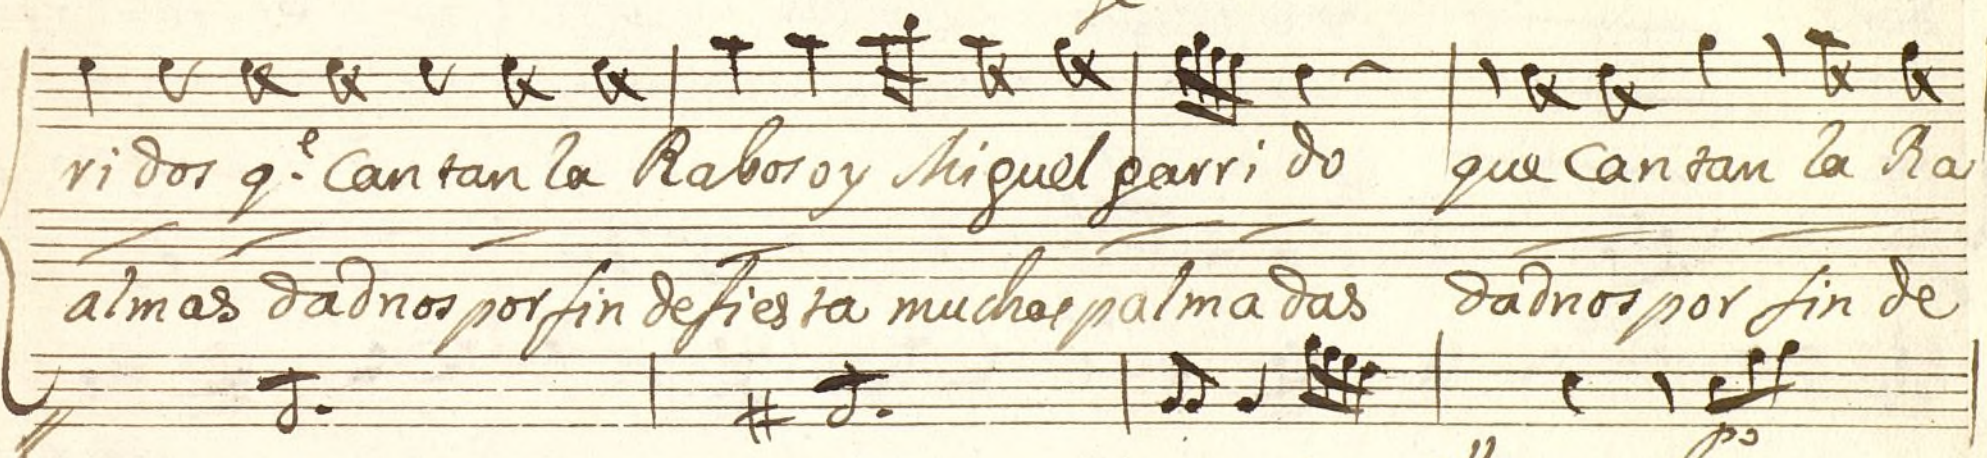 ri dos q.e Can tan la Rabosoy Miguel garri do que Can tan la Ra
almas dadnos por fin de fies ta muchas palma das dadnos por fin de
po